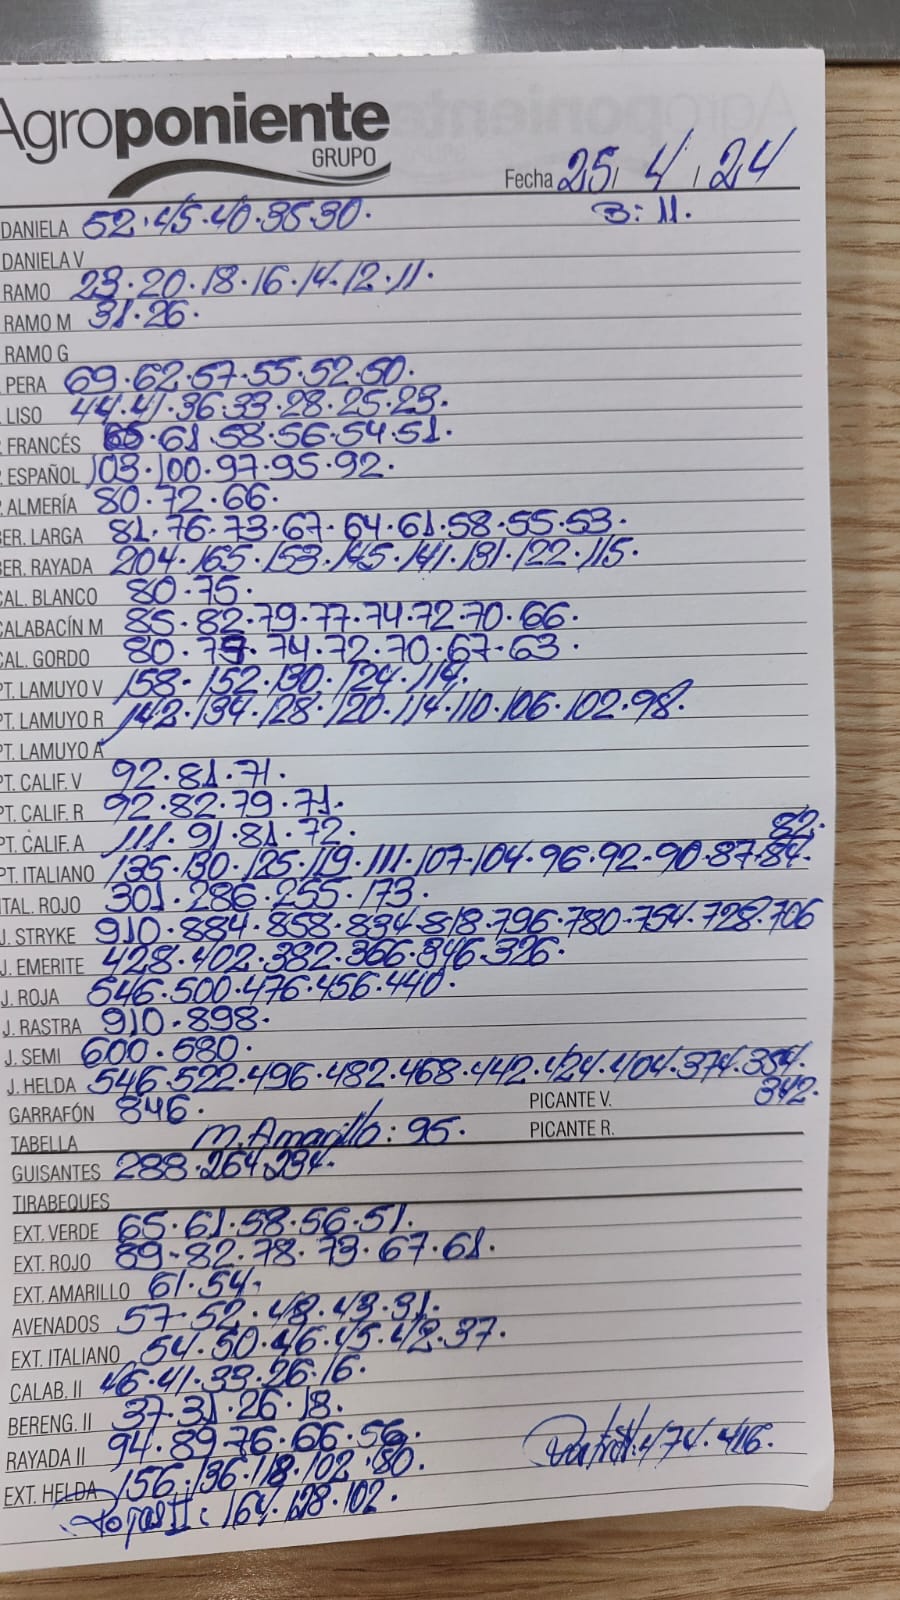 Agroponiente
GRUPO
Fecha 25/ 4 / 24
B: 11.
DANIELA 52.45.40.35.30.
DANIELA V
RAMO 23.20.18.16.14.12.11.
RAMO M 31.26.
RAMO G
PERA 69.62.57.55.52.50.
LISO 44.41.36.33.28.25.23.
FRANCÉS 66.61.58.56.54.51.
ESPAÑOL 103.100.97.95.92.
ALMERÍA 80.72.66.
BER. LARGA 81.76.73.67.64.61.58.55.53.
BER. RAYADA 204.165.153.145.141.131.122.115.
CAL. BLANCO 80.75.
CALABACÍN M 85.82.79.77.74.72.70.66.
CAL. GORDO 80.79.74.72.70.67.63.
PT. LAMUYO V 158.152.130.124.114.
PT. LAMUYO R 142.134.128.120.114.110.106.102.98.
PT. LAMUYO A
PT. CALIF. V 92.81.71.
PT. CALIF. R 92.82.79.71.
PT. CALIF. A 111.91.81.72.
PT. ITALIANO 135.130.125.119.111.107.104.96.92.90.87.84.
82.
ITAL. ROJO 301.286.255.173.
J. STRYKE 910.884.858.834.818.796.780.754.728.706
J. EMERITE 428.402.382.366.346.326.
J. ROJA 546.500.476.456.440.
J. RASTRA 910.898.
J. SEMI 600.580.
J. HELDA 546.522.496.482.468.442.424.404.374.354.
342.
GARRAFÓN 846. PICANTE V.
TABELLA M. Amarillo: 95. PICANTE R.
GUISANTES 288.264.234.
TIRABEQUES
EXT. VERDE 65.61.58.56.51.
EXT. ROJO 89.82.78.73.67.61.
EXT. AMARILLO 61.54.
AVENADOS 57.52.48.43.31.
EXT. ITALIANO 54.50.46.45.42.37.
CALAB. II 46.41.33.26.16.
BERENG. II 37.31.26.18.
RAYADA II 94.89.76.66.56.
474.416.
EXT. HELDA 156.136.118.102.80.
Rojas II: 164.128.102.